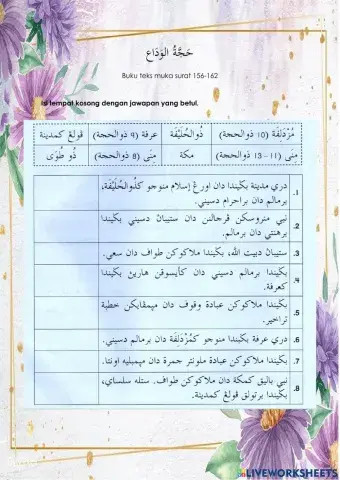 حَجَّةُ الوَدَاع
Buku teks muka surat 156-162
Isi tempat kosong dengan jawapan yang betul.
مُزْدَلِفَة (10 ذوالحجة) ذُوالْحُلَيْفَة عرفة (9 ذوالحجة) ڤولڠ کمدينة
مِنَى (11 – 13 ذوالحجة) مكة مِنَى (8 ذوالحجة) ذُو طُوَى
1. دري مدينة بݢيندا دان اورڠ إسلام منوجو کذُوالْحُلَيْفَة،
برمالم دان براحرام دسيني.
2. نبي منروسکن ڤرجالنن دان ستيبان دسيني بݢيندا
برهنتي دان برمالم.
3. ستيبان دبيت الله، بݢيندا ملاکوکن طواف دان سعي.
4. بݢيندا برمالم دسيني دان کأيسوقن هارين بݢيندا
کعرفة.
5. بݢيندا ملاکوکن عبادة وقوف دان مڽمڤايکن خطبة
تراخير.
6. دري عرفة بݢيندا منوجو کمُزْدَلِفَة دان برمالم دسيني.
7. بݢيندا ملاکوکن عبادة ملونتر جمرة دان مڽمبليه اونتا.
8. نبي باليق کمکة دان ملاکوکن طواف. ستله سلساي،
بݢيندا برتولق ڤولڠ کمدينة.
LIVEWORKSHEETS